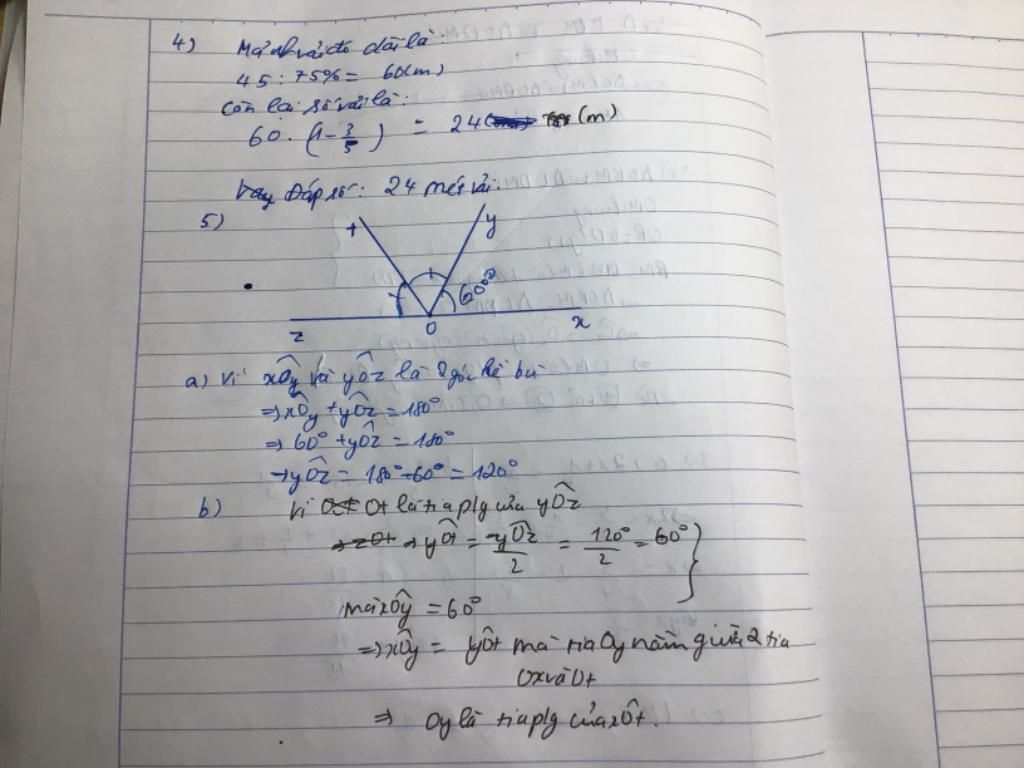 4) Mảnh vải đó dài là:
45 : 75% = 60(m)
Còn lại số vải là:
60 . (1 - 3/5) = 24 (m)
Đáp số: 24 mét vải.
5)
t
y
60°
z
O
x
a) Vì xÔy và yÔz là 2 góc kề bù
⇒ xÔy + yÔz = 180°
⇒ 60° + yÔz = 180°
→ yÔz = 180° - 60° = 120°
b) Vì Ot là tia p/g của yÔz
⇒ yÔt = yÔz/2 = 120°/2 = 60°
mà xÔy = 60°
⇒ xÔy = yÔt mà tia Oy nằm giữa 2 tia
Ox và Ot
⇒ Oy là tia p/g của xÔt.